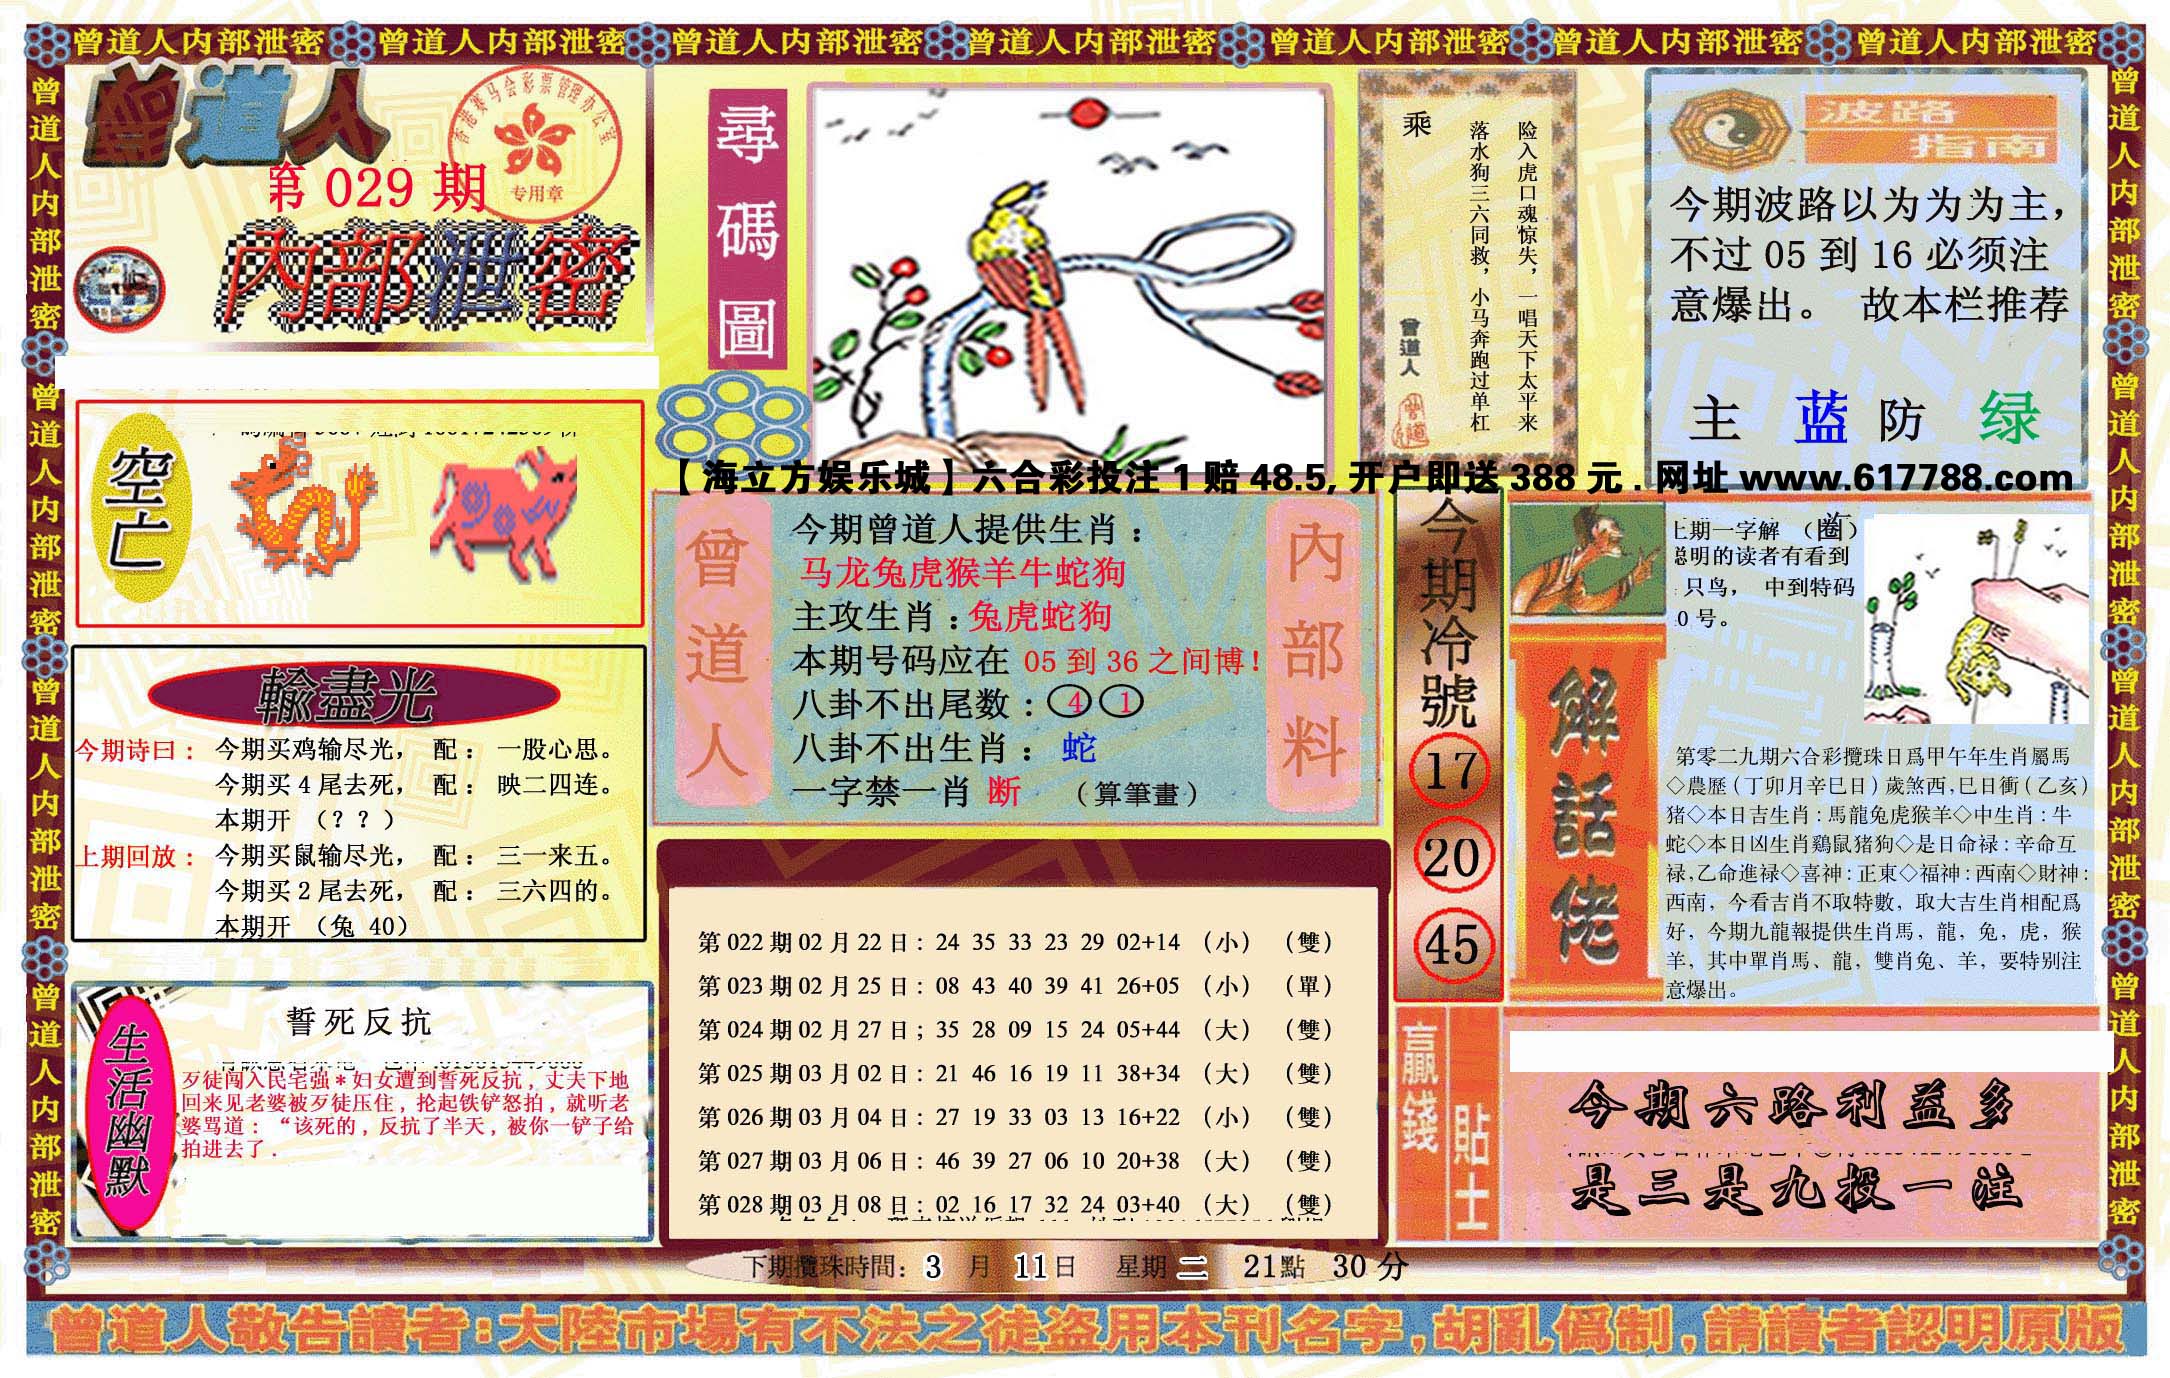 曾道人内部泄密 曾道人内部泄密 曾道人内部泄密 曾道人内部泄密 曾道人内部泄密 曾道人内部泄密 曾道人内部泄密
曾道人内部泄密
曾道人内部泄密
曾道人内部泄密
曾道人内部泄密
曾道人
香港赛马会彩票管理办公室
专用章
第 029 期
內部泄密
空亡
輸盡光
今期诗曰： 今期买鸡输尽光， 配： 一股心思。
今期买 4 尾去死， 配： 映二四连。
本期开 （？？）
上期回放： 今期买鼠输尽光， 配： 三一来五。
今期买 2 尾去死， 配： 三六四的。
本期开 （兔 40）
生活幽默
誓死反抗
歹徒闯入民宅强*妇女遭到誓死反抗，丈夫下地
回来见老婆被歹徒压住，抡起铁铲怒拍，就听老
婆骂道：“该死的，反抗了半天，被你一铲子给
拍进去了.
尋碼圖
险入虎口魂惊失，一唱天下太平来
落水狗三六同救，小马奔跑过单杠
乘
曾道人
波路
指南
今期波路以为为为主，
不过 05 到 16 必须注
意爆出。 故本栏推荐
主 蓝 防 绿
【海立方娱乐城】六合彩投注 1 赔 48.5, 开户即送 388 元 . 网址 www.617788.com
曾道人
内部料
今期曾道人提供生肖：
马龙兔虎猴羊牛蛇狗
主攻生肖：兔虎蛇狗
本期号码应在 05 到 36 之间博!
八卦不出尾数：4 1
八卦不出生肖： 蛇
一字禁一肖 断 （算筆畫）
第 022 期 02 月 22 日: 24 35 33 23 29 02+14 （小） （雙）
第 023 期 02 月 25 日: 08 43 40 39 41 26+05 （小） （單）
第 024 期 02 月 27 日; 35 28 09 15 24 05+44 （大） （雙）
第 025 期 03 月 02 日: 21 46 16 19 11 38+34 （大） （雙）
第 026 期 03 月 04 日: 27 19 33 03 13 16+22 （小） （雙）
第 027 期 03 月 06 日: 46 39 27 06 10 20+38 （大） （雙）
第 028 期 03 月 08 日: 02 16 17 32 24 03+40 （大） （雙）
今期冷號
17
20
45
解話佬
上期一字解 （圈）
聪明的读者有看到
只鸟， 中到特码
0 号。
第零二九期六合彩攬珠日爲甲午年生肖屬馬
◇農歷（丁卯月辛巳日）歲煞西,巳日衝（乙亥）
猪◇本日吉生肖:馬龍兔虎猴羊◇中生肖:牛
蛇◇本日凶生肖鷄鼠猪狗◇是日命禄:辛命互
禄,乙命進禄◇喜神:正東◇福神:西南◇財神:
西南，今看吉肖不取特數，取大吉生肖相配爲
好，今期九龍報提供生肖馬，龍，兔，虎，猴
羊，其中單肖馬、龍，雙肖兔、羊，要特别注
意爆出。
贏錢
貼士
今期六路利益多
是三是九投一注
下期攪珠時間：3 月 11日 星期 二 21點 30 分
曾道人敬告讀者:大陸市場有不法之徒盗用本刊名字,胡亂僞制,請讀者認明原版